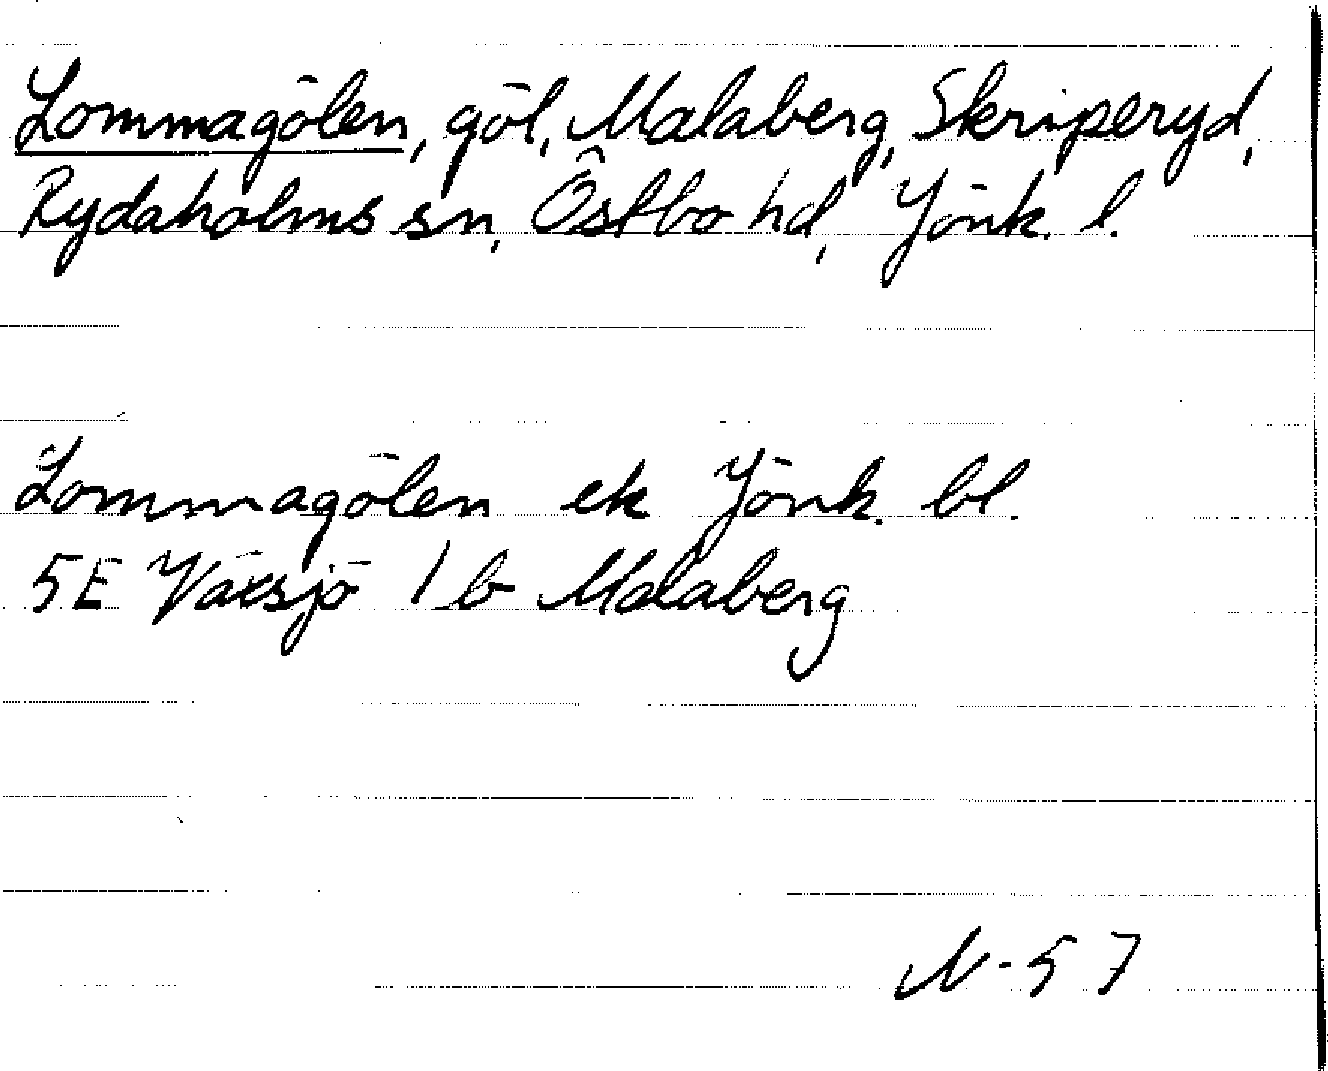 Lommagölen, göl, Malaberg, Skriperyd,
Rydaholms sn, Östbo hd, Jönk. l.
Lommagölen ek Jönk. bl.
5E Växsjö 1 b Malaberg
N-57